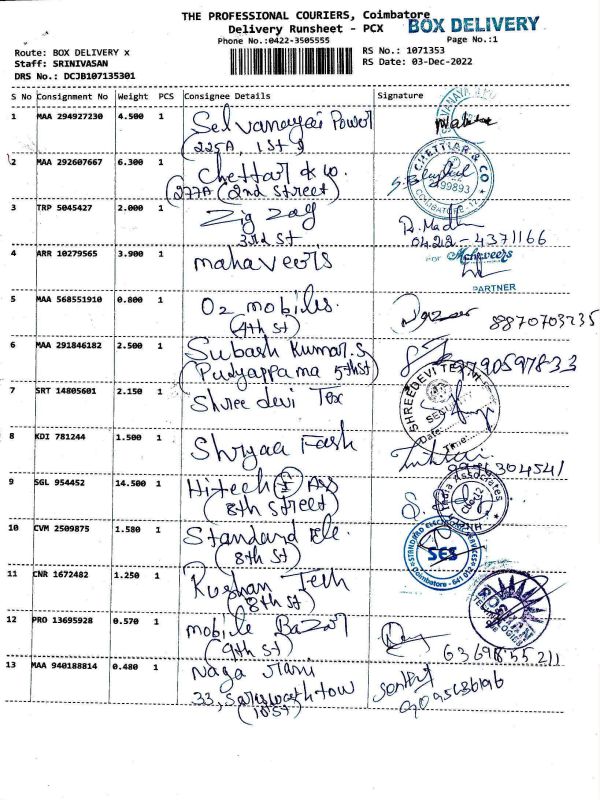 THE PROFESSIONAL COURIERS, Coimbatore
Delivery Runsheet - PCX
BOX DELIVERY
Phone No.:0422-3505555
Page No.:1
Route: BOX DELIVERY x
RS No.: 1071353
Staff: SRINIVASAN
RS Date: 03-Dec-2022
DRS No.: DCJB107135301
S No Consignment No Weight PCS Consignee Details Signature
1 MAA 294927230 4.500 1 Selvanayagi Power
(225A, 1st S
2 MAA 292607667 6.300 1 Chettar & co.
(277A (2nd Street)
CHETTIAR & CO
99893
COIMBATORE-12
3 TRP 5045427 2.000 1 Zig Zag
3rd St
R. Madhu
0422-4371166
4 ARR 10279565 3.900 1 mahaveers
For Mahaveers
PARTNER
5 MAA 568551910 0.800 1 O2 mobiles.
(4th St)
8870703235
6 MAA 291846182 2.500 1 Subash Kumar.S
(Pudyappa ma 5th St)
9790597833
7 SRT 14805601 2.150 1 Shree devi Tex
SHREEDEVI TEXTI
SECURITY
Date:
Time:
8 KDI 781244 1.500 1 Shryaa Fash
9976304541
9 SGL 954452 14.500 1 Hitech I Ass
(8th Street)
India Associates
10 CVM 2509875 1.580 1 Standard Ele.
(8th St)
STANDARD ELECTRICAL
SES
Coimbatore - 641 012
11 CNR 1672482 1.250 1 Rushan Tech
(8th St)
ROSHAN
TECHNOLOGIES
12 PRO 13695928 0.570 1 mobile Bazar
(9th St)
6369855211
13 MAA 940188814 0.480 1 Naga rani
33, Saraswathtow
(10 St)